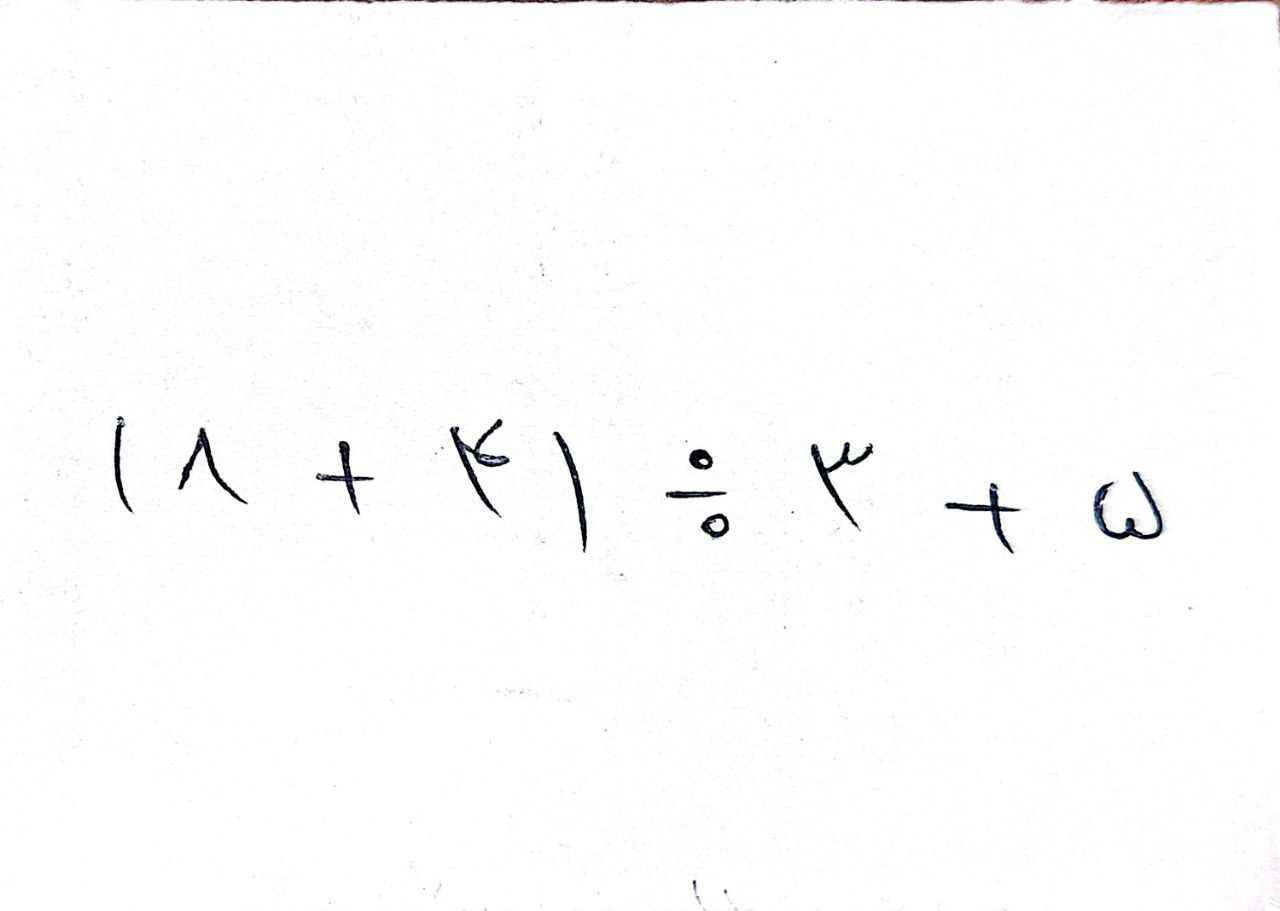 (۸ + ۴) ÷ ۳ + ۵